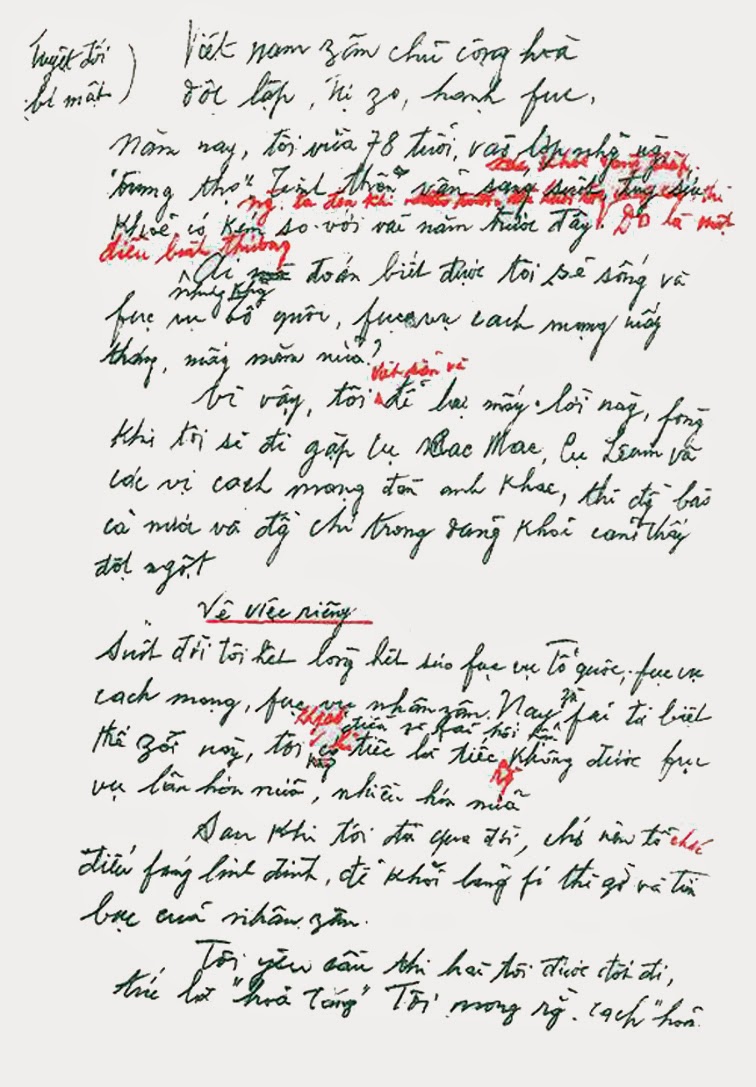 Tuyệt đối
bí mật)
Việt nam zân chủ cộng hoà
độc lập, tự zo, hạnh fúc.
Năm nay, tôi vừa 78 tuổi, vào lớp những
"trung thọ". Tinh thần vẫn sáng suốt, tuy sức
khoẻ có kém so với vài năm trước đây. Đó là một
điều bình thường
Ai mà đoán biết được tôi sẽ sống và
fục vụ tổ quốc, fục vụ cách mạng mấy
tháng, mấy năm nữa?
viết sẵn và
Vì vậy, tôi để lại mấy lời này, fòng
khi tôi sẽ đi gặp cụ Các Mác, Cụ Lênin và
các vị cách mạng đàn anh khác, thì đồng bào
cả nước và đồng chí trong đảng khỏi cảm thấy
đột ngột
Về việc riêng
Suốt đời tôi hết lòng hết sức fục vụ Tổ quốc, fục vụ
cách mạng, fục vụ nhân zân. Nay zù fải từ biệt
điều gì fải hối hận
thế zới này, tôi không có tiếc là tiếc rằng không được fục
vụ lâu hơn nữa, nhiều hơn nữa
Sau khi tôi đã qua đời, chớ nên tổ chức
điếu fúng linh đình, để khỏi lãng fí thì giờ và tiền
bạc của nhân zân.
Tôi yêu cầu thi hài tôi được đốt đi,
tức là "hoả táng" Tôi mong rằng cách "hoả